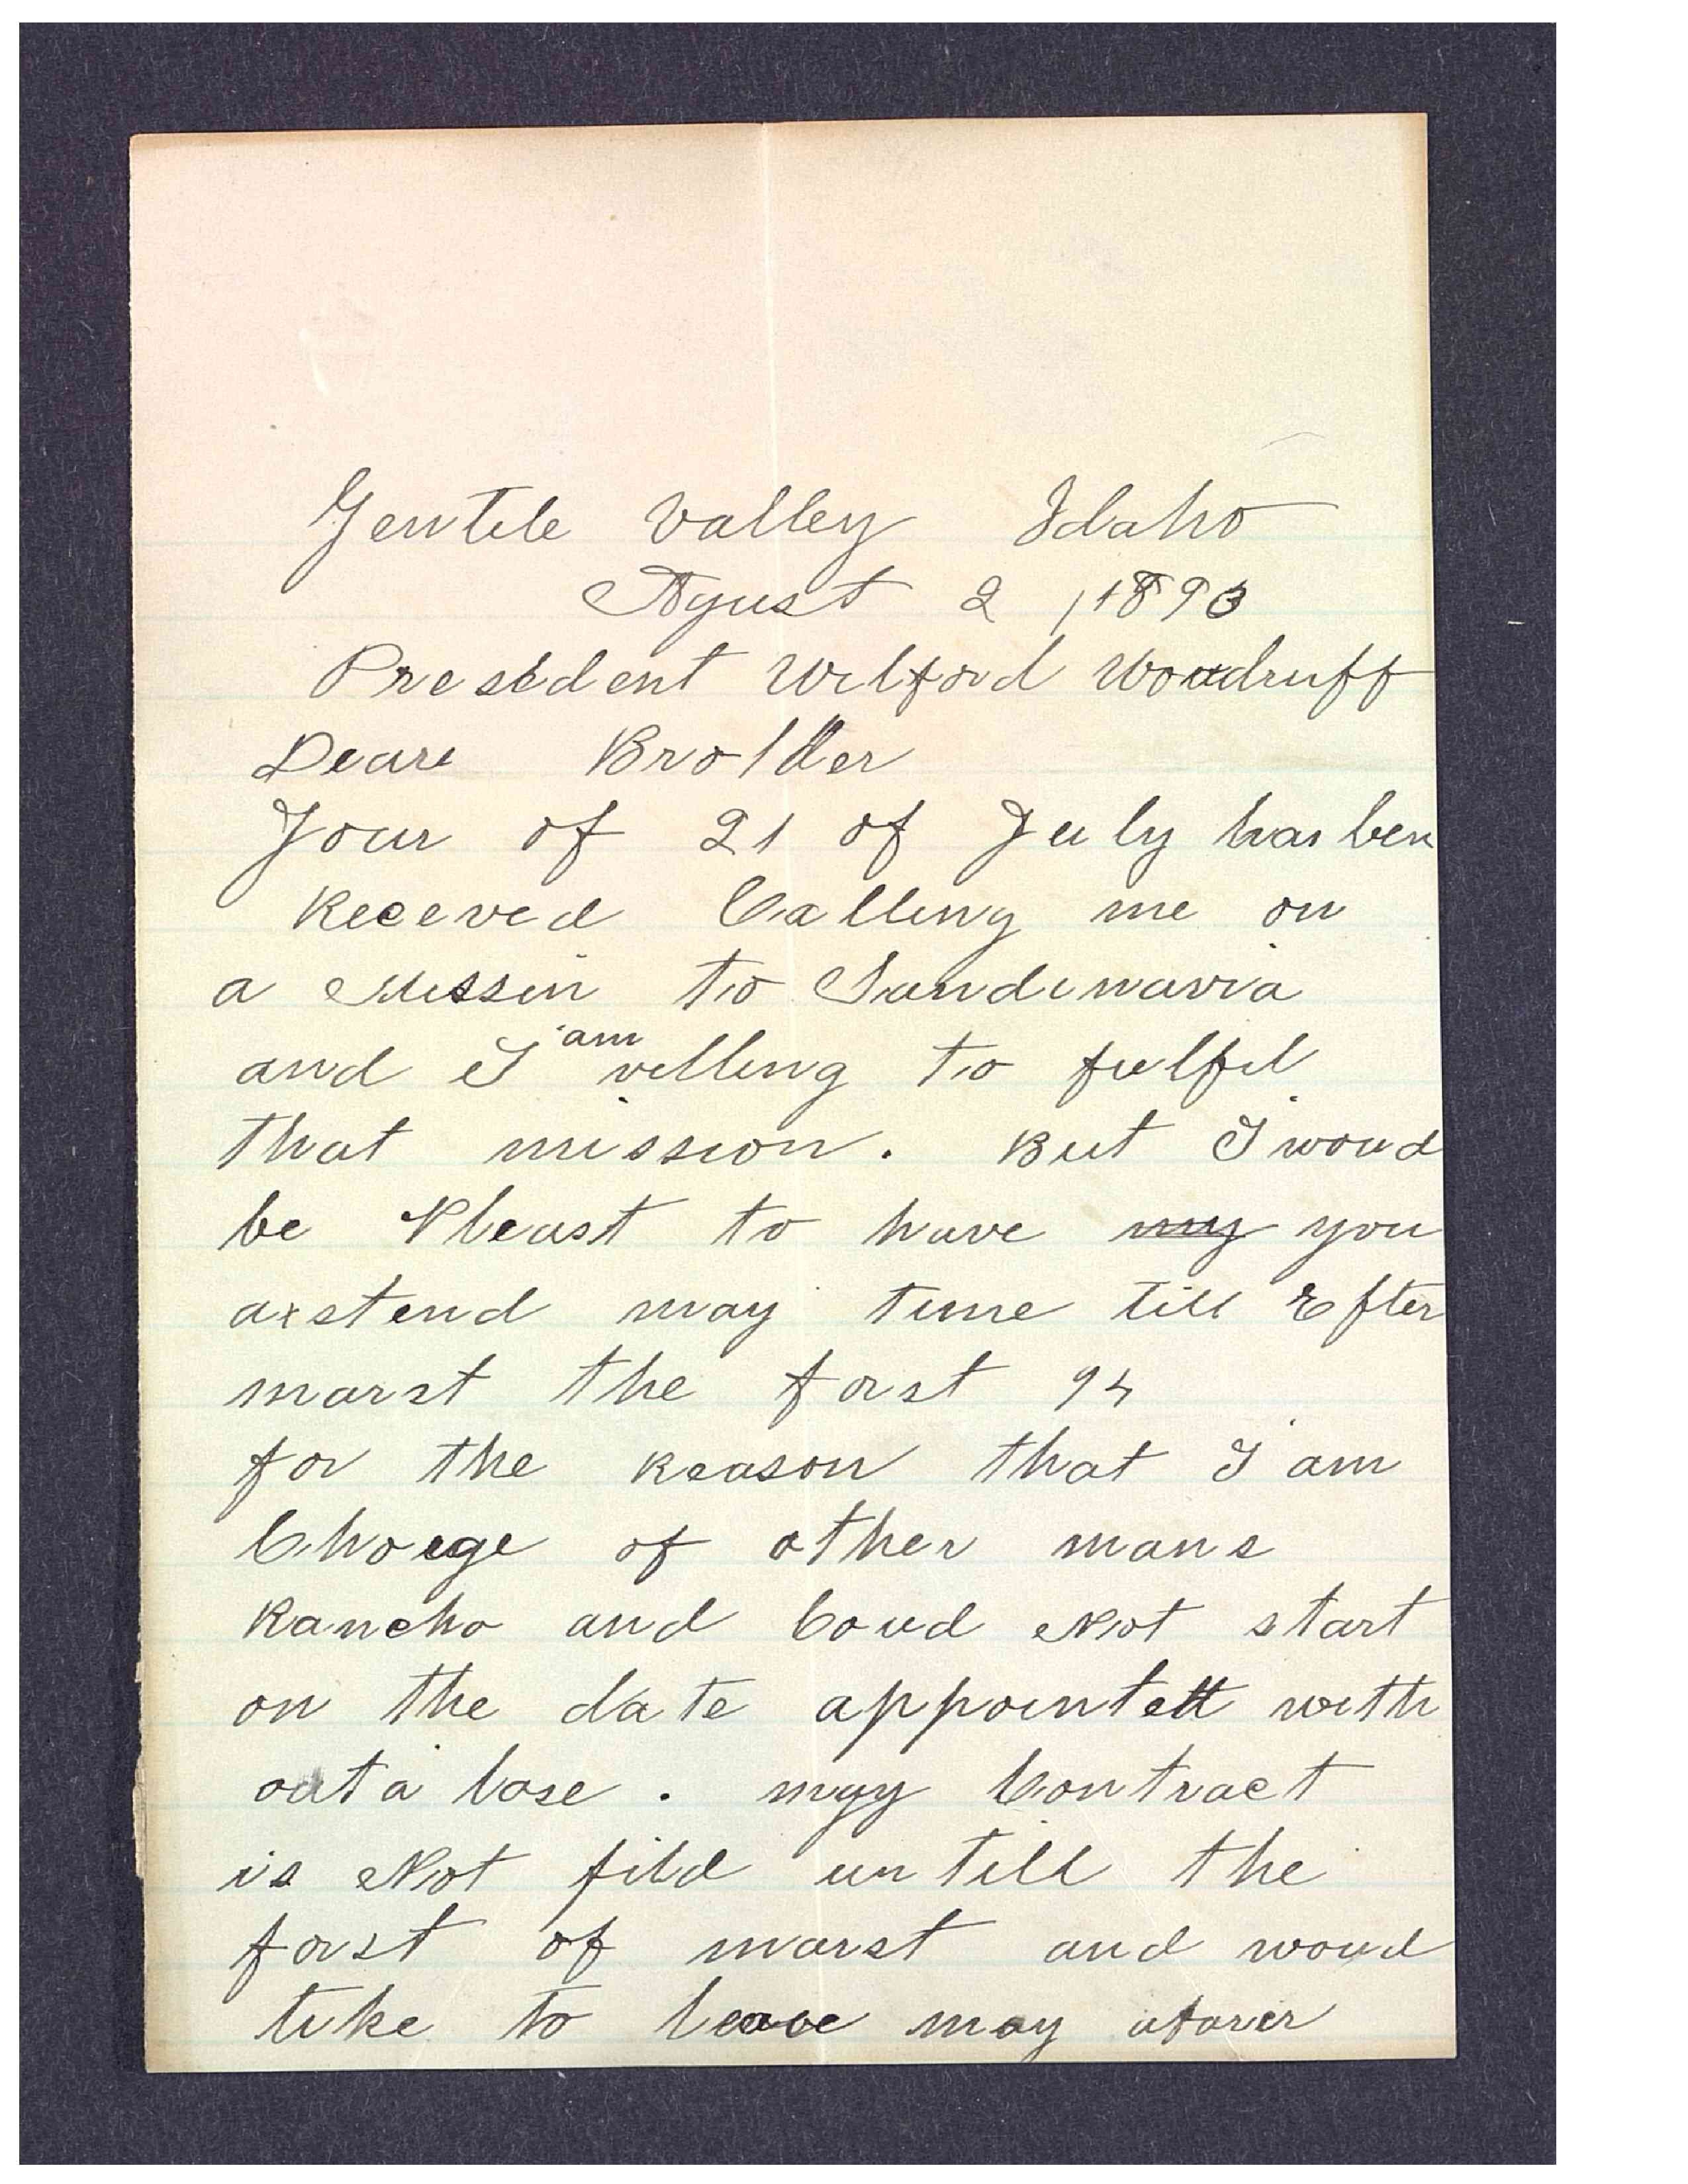 Gentile Valley Idaho
Agust 2, 1893
President Wilford Woodruff
Deare Brother
Your of 21 of July has ben
Receved Calling me on
a Missin to Sandinavia
and I am villing to fulfil
that mission. But I woud
be Pleast to have my you
axtend may time till Efter
marst the forst 94
for the Reason that I am
Charge of other mans
Rancho and Coud Not start
on the date appointett with
out a lose. my Contract
is Not fild untill the
forst of marst and woud
like to leave may afarer